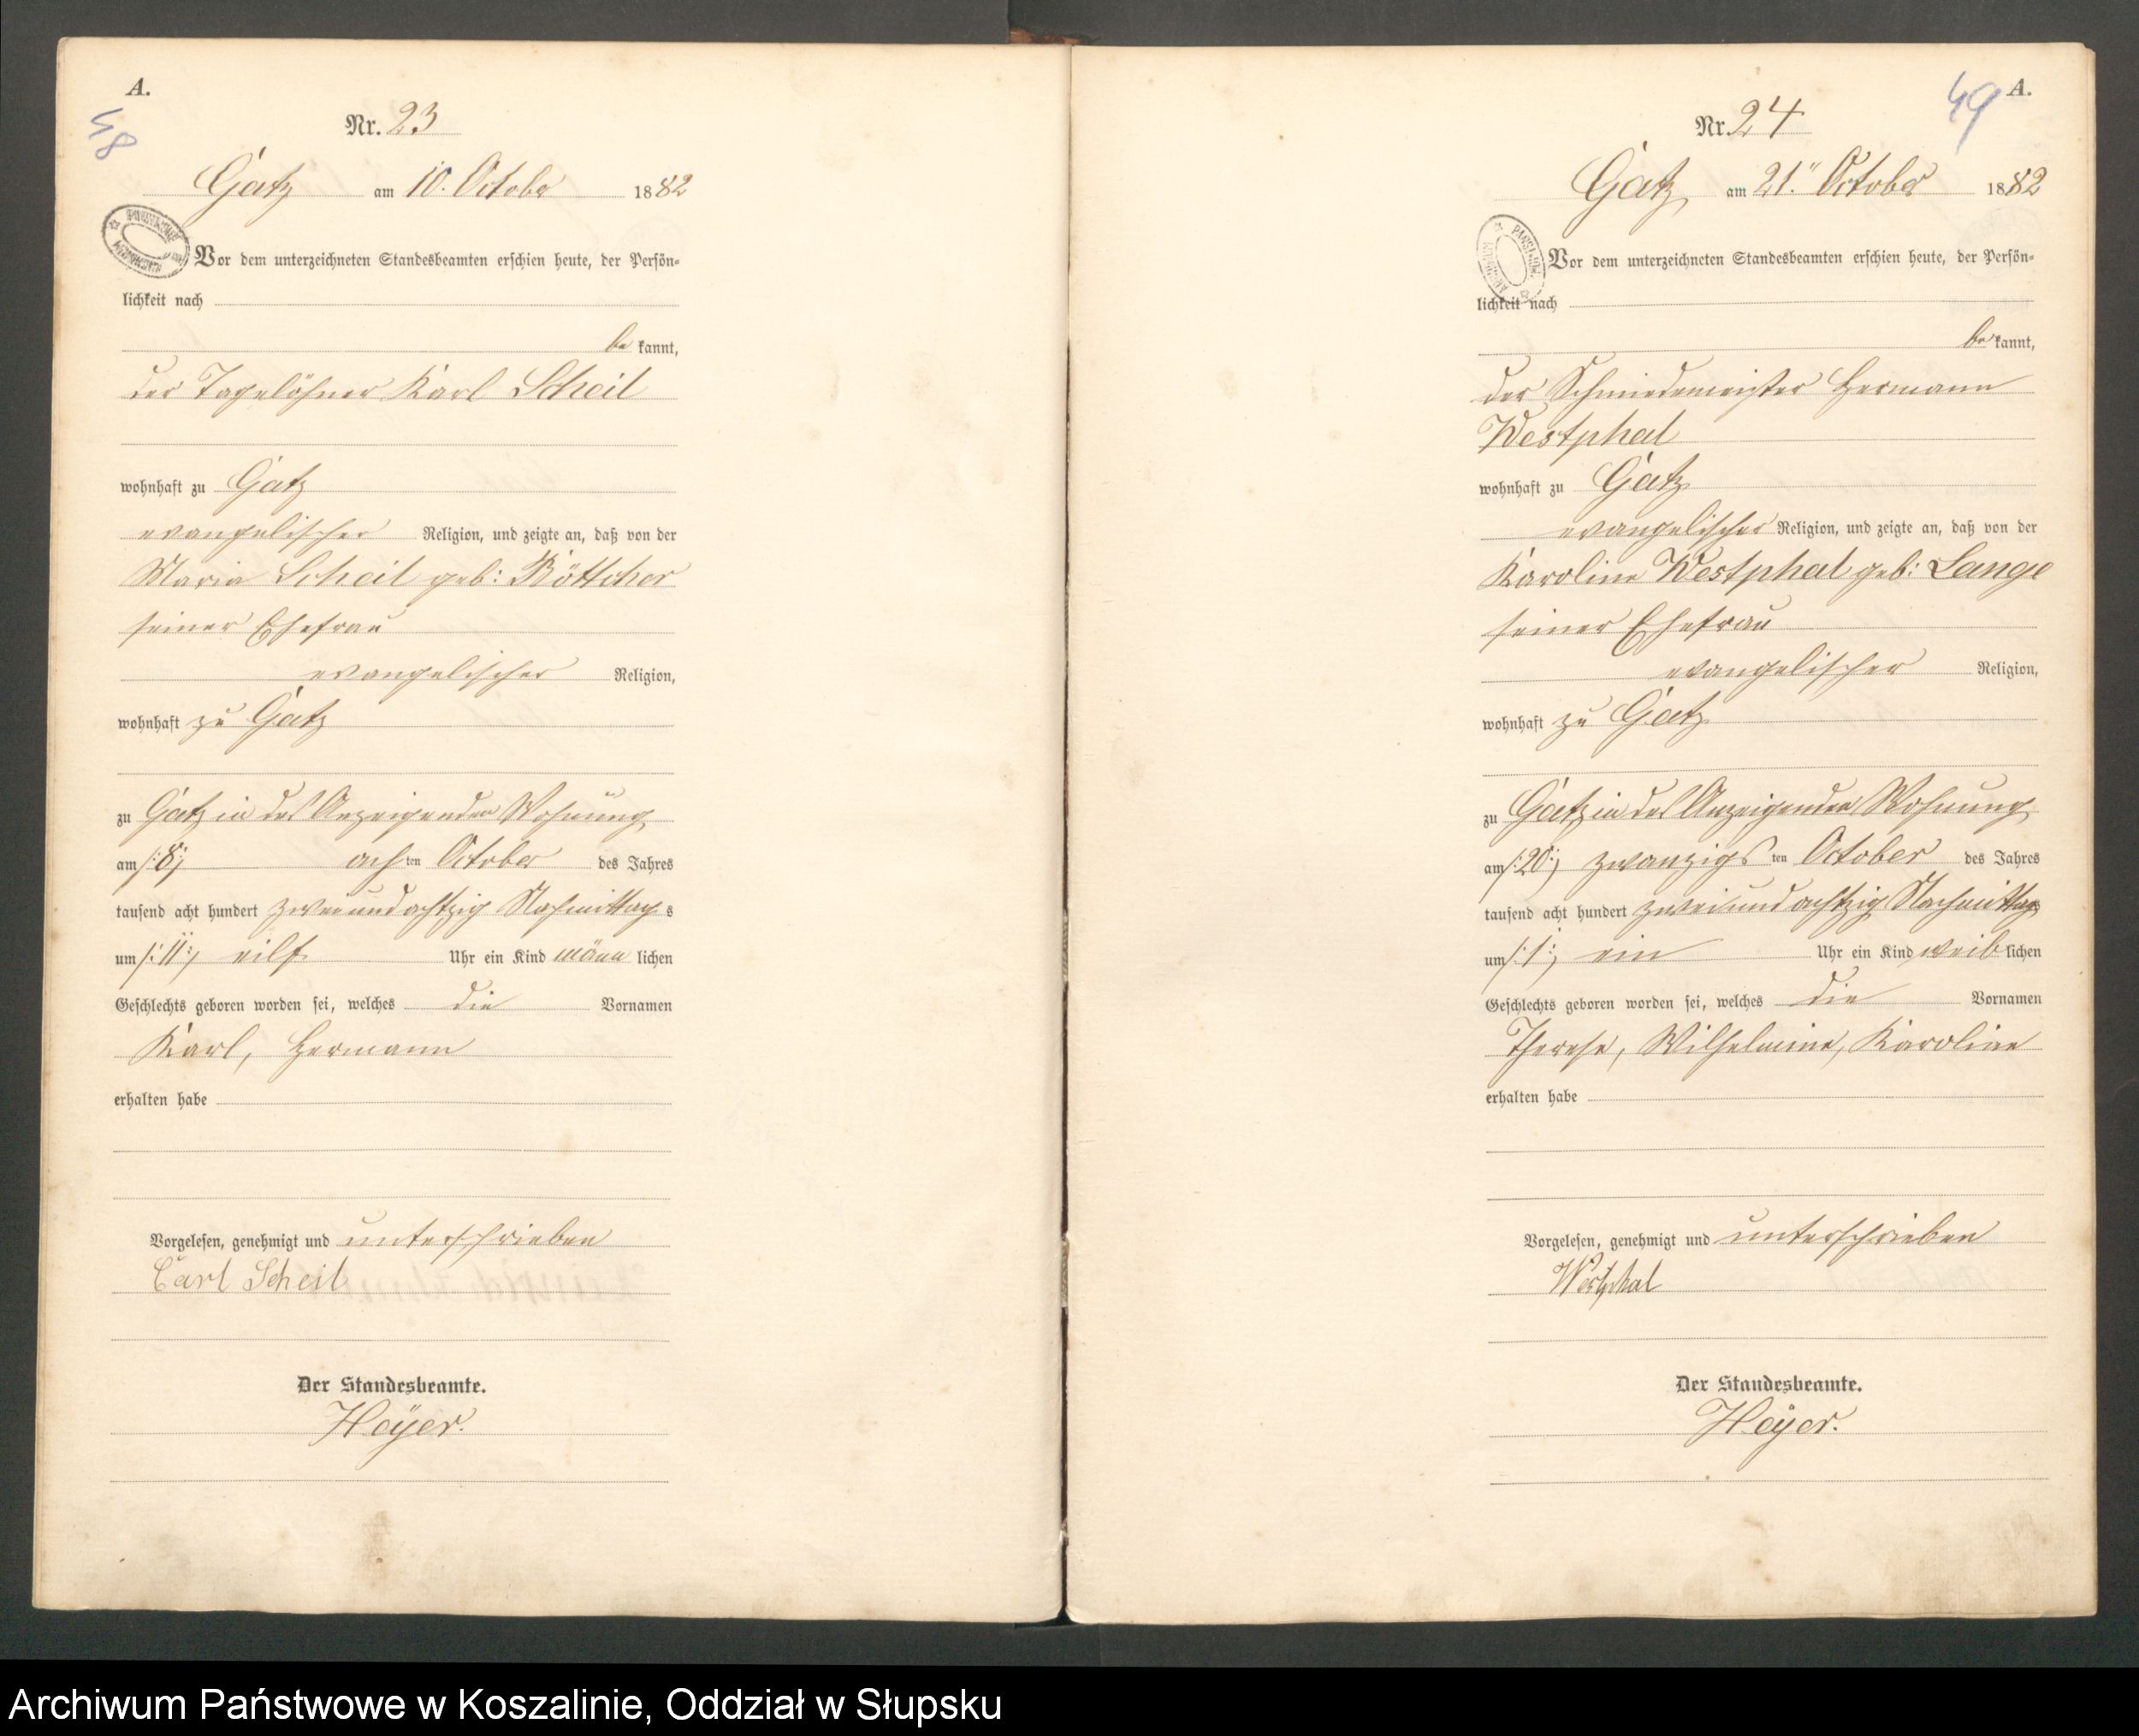 A.
48
Nr. 23
Gatz am 10. October 1882
Vor dem unterzeichneten Standesbeamten erschien heute, der Persön-
lichkeit nach
be kannt,
der Tagelöhner Karl Scheil
wohnhaft zu Gatz
evangelischer Religion, und zeigte an, daß von der
Maria Scheil geb: Böttcher
seiner Ehefrau
evangelischer Religion,
wohnhaft zu Gatz
zu Gatz in des Anzeigenden Wohnung
am /:8:/ ach ten October des Jahres
tausend acht hundert zwei und achtzig Nachmittag s
um /:11:/ eilf Uhr ein Kind männ lichen
Geschlechts geboren worden sei, welches die Vornamen
Karl, Hermann
erhalten habe
Vorgelesen, genehmigt und unterschrieben
Carl Scheil
Der Standesbeamte.
Heyer.
49
A.
Nr. 24
Gatz am 21. October 1882
Vor dem unterzeichneten Standesbeamten erschien heute, der Persön-
lichkeit nach
be kannt,
der Schmiedemeister Hermann
Westphal
wohnhaft zu Gatz
evangelischer Religion, und zeigte an, daß von der
Karoline Westphal geb: Lange
seiner Ehefrau
evangelischer Religion,
wohnhaft zu Gatz
zu Gatz in des Anzeigenden Wohnung
am /:20:/ zwanzigs ten October des Jahres
tausend acht hundert zwei und achtzig Nachmittag
um /:1:/ ein Uhr ein Kind weib lichen
Geschlechts geboren worden sei, welches die Vornamen
Therese, Wilhelmine, Karoline
erhalten habe
Vorgelesen, genehmigt und unterschrieben
Westphal
Der Standesbeamte.
Heyer.
Archiwum Państwowe w Koszalinie, Oddział w Słupsku